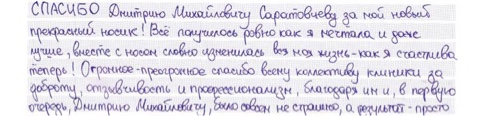 СПАСИБО Дмитрию Михайловичу Саратовцеву за мой новый
прекрасный носик! Всё получилось ровно как я мечтала и даже
лучше, вместе с носом словно изменилась вся моя жизнь - как я счастлива
теперь! Огромное-преогромное спасибо всему коллективу клиники за
доброту, отзывчивость и профессионализм, благодаря им и, в первую
очередь, Дмитрию Михайловичу, было совсем не страшно, а результат - просто